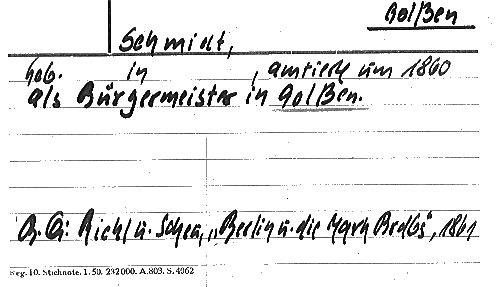 Golßen
Schmidt,
geb. in , amtierte um 1860
als Bürgermeister in Golßen.
Riehl u. Scheu, „Berlin u. die Mark Brdbg", 1861
Reg. 10. Stichnote. 1. 50. 232000. A. 803. S. 4962